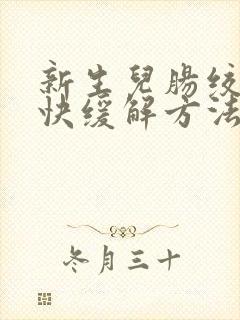 新生兒腸绞
快缓解方法
冬月三十